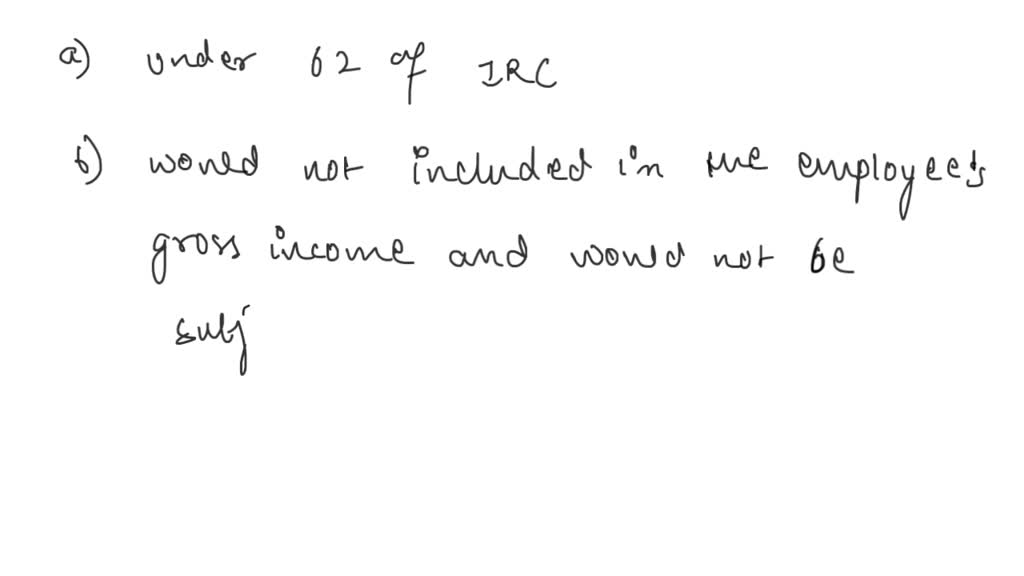 a) under 62 of IRC
b) would not included in the employee's
gross income and would not be
subj